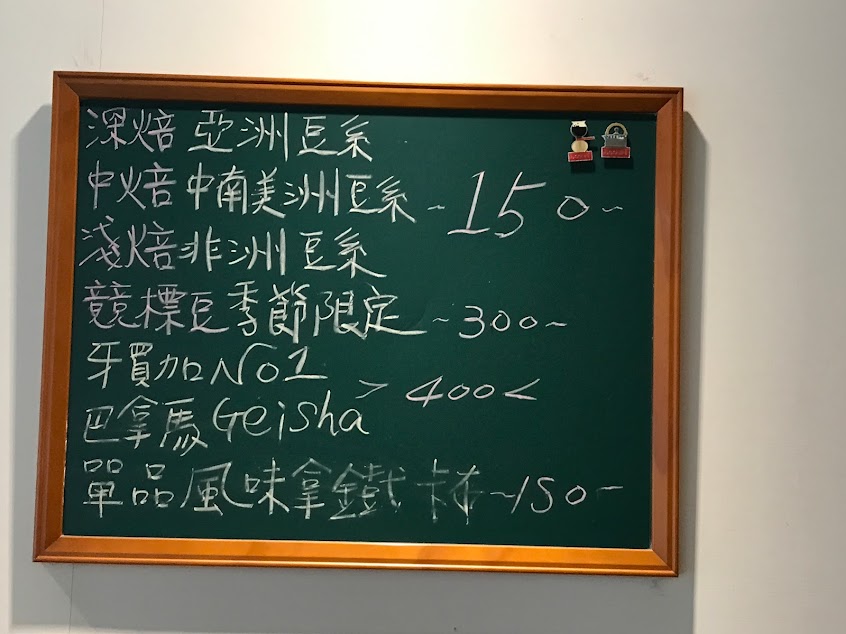 深焙 亞洲豆系
中焙 中南美洲豆系 ~150~
淺焙 非洲豆系
競標豆季節限定 ~300~
牙買加 No1
> 400 <
巴拿馬 Geisha
單品風味拿鐵 卡布 ~150~